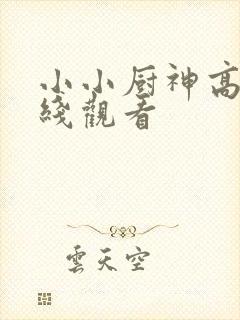 小小厨神高
綫觀看
雲天空